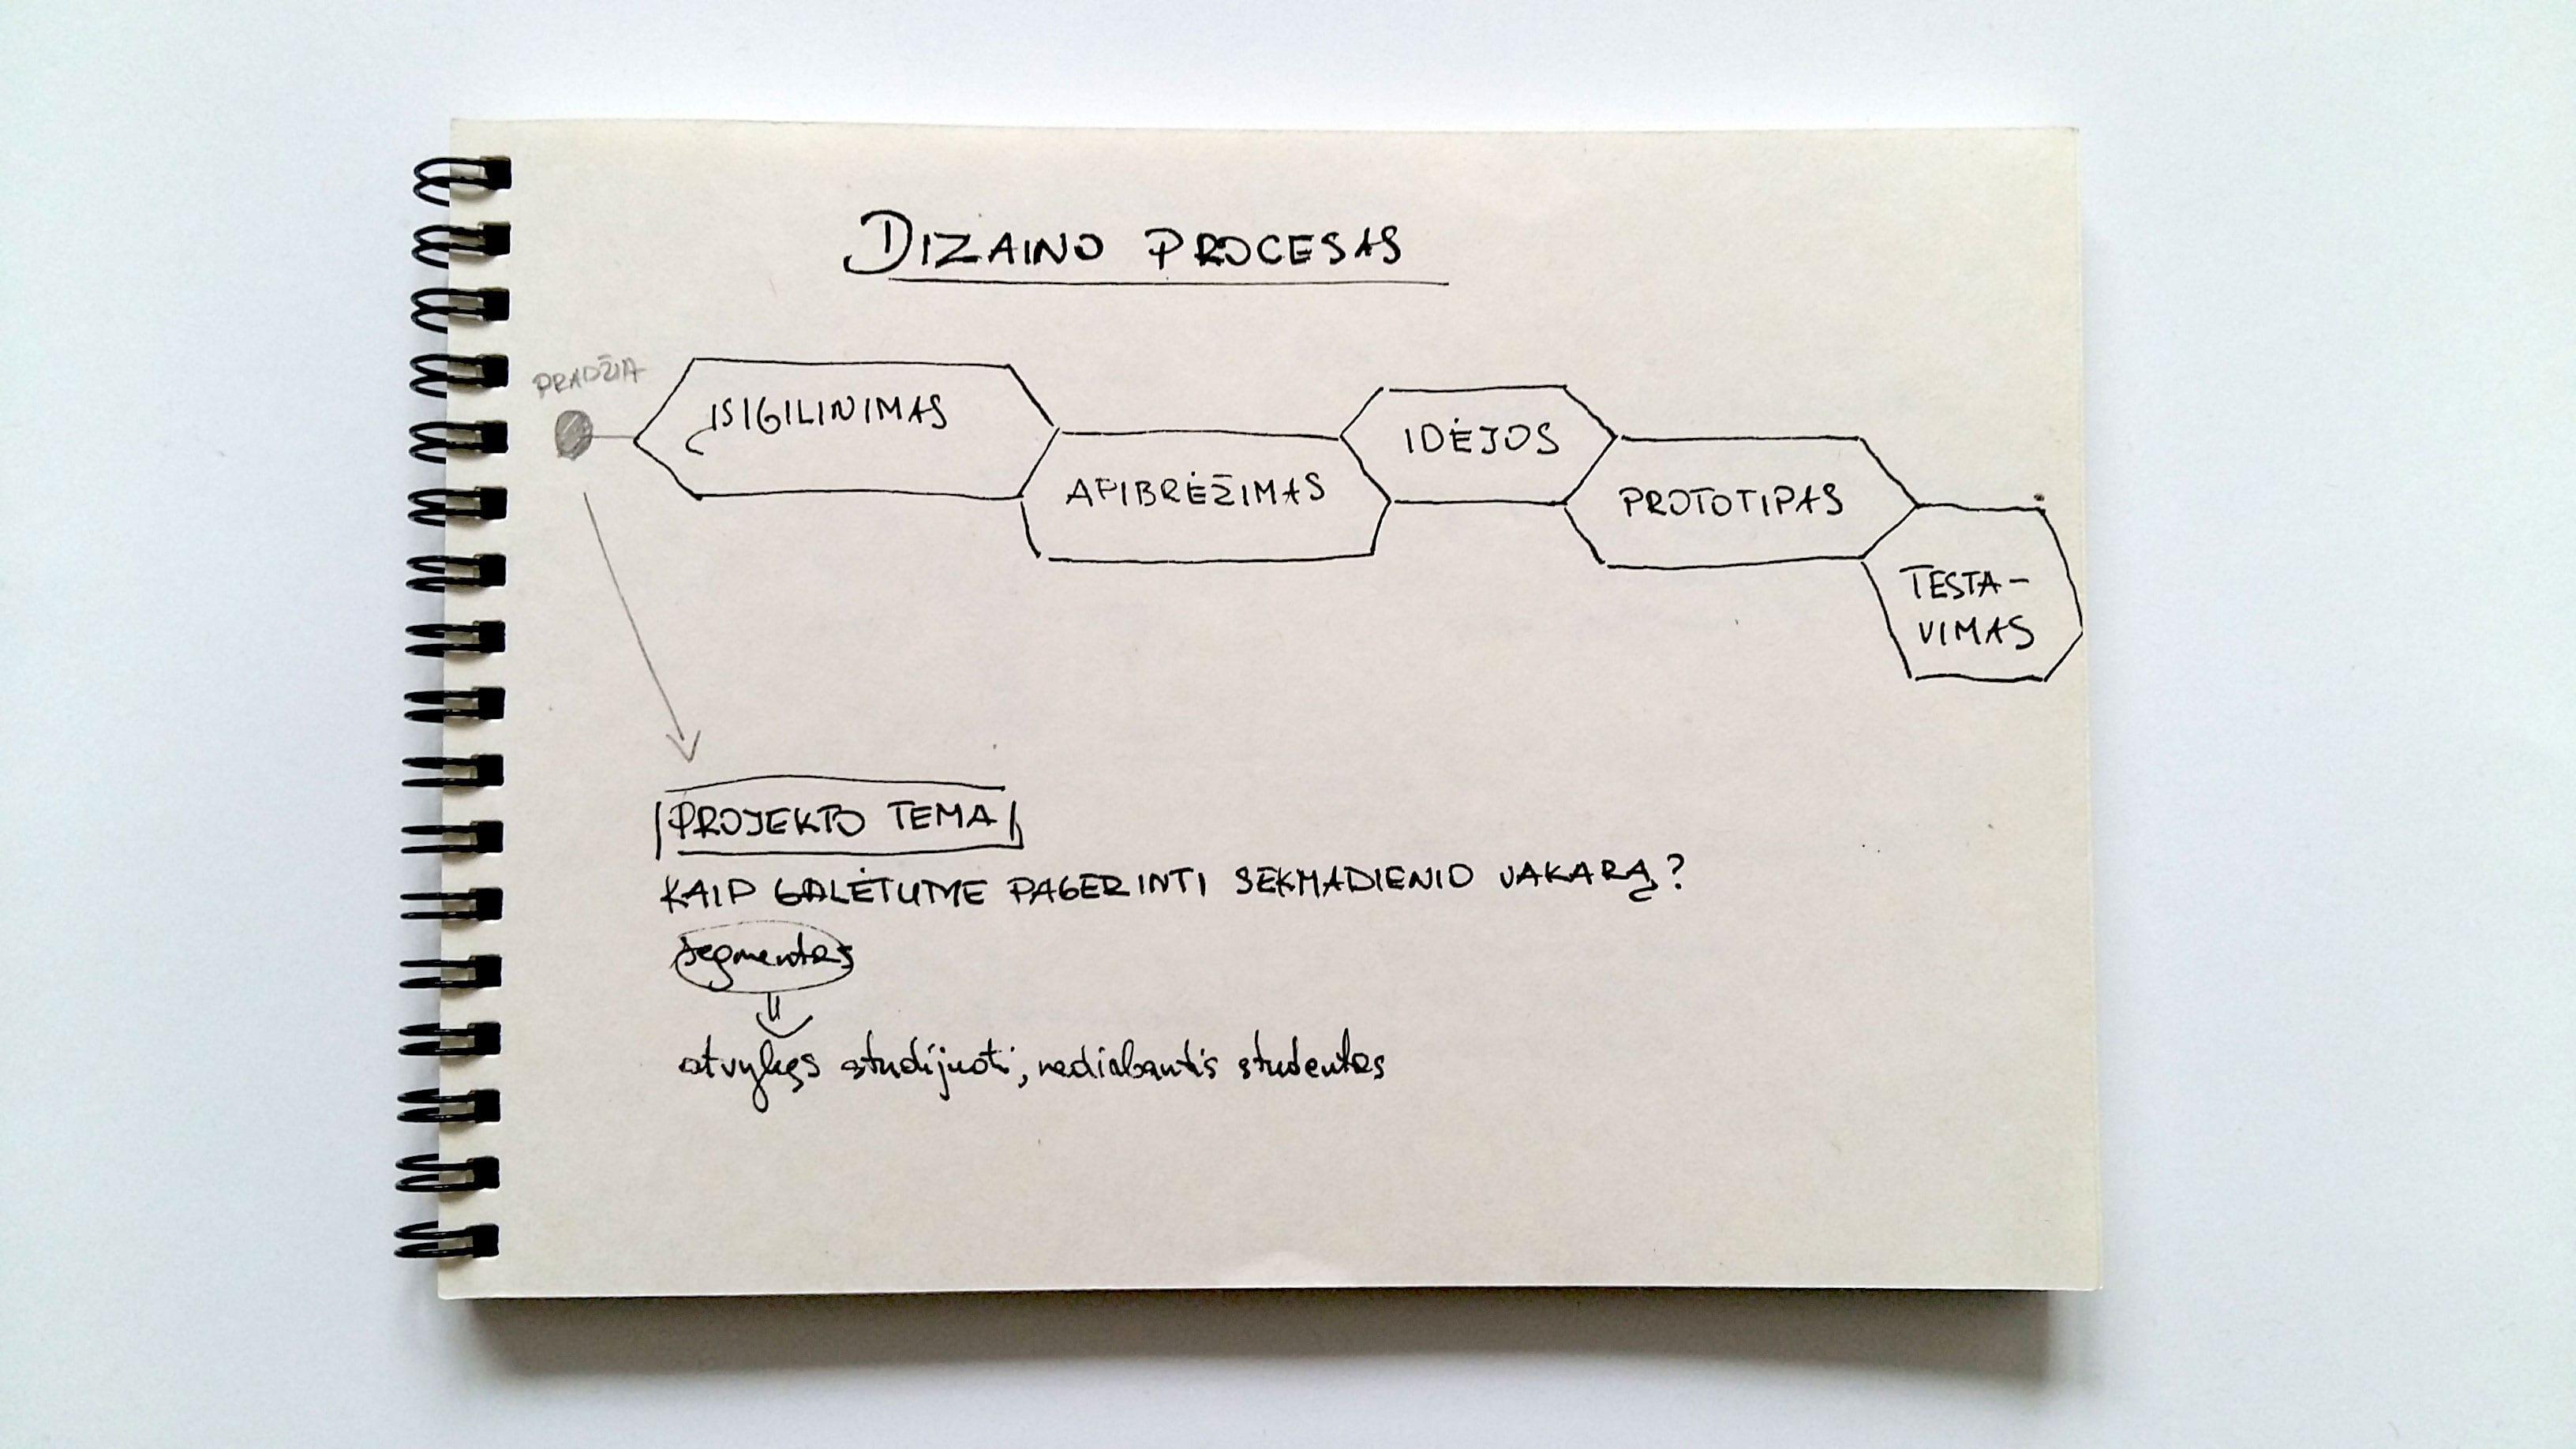 DIZAINO PROCESAS
PRADŽIA
ĮSIGILINIMAS
APIBRĖŽIMAS
IDĖJOS
PROTOTIPAS
TESTA-
VIMAS
PROJEKTO TEMA
KAIP GALĖTUME PAGERINTI SEKMADIENIO VAKARĄ?
segmentas
atvykęs studijuoti, nedirbantis studentas